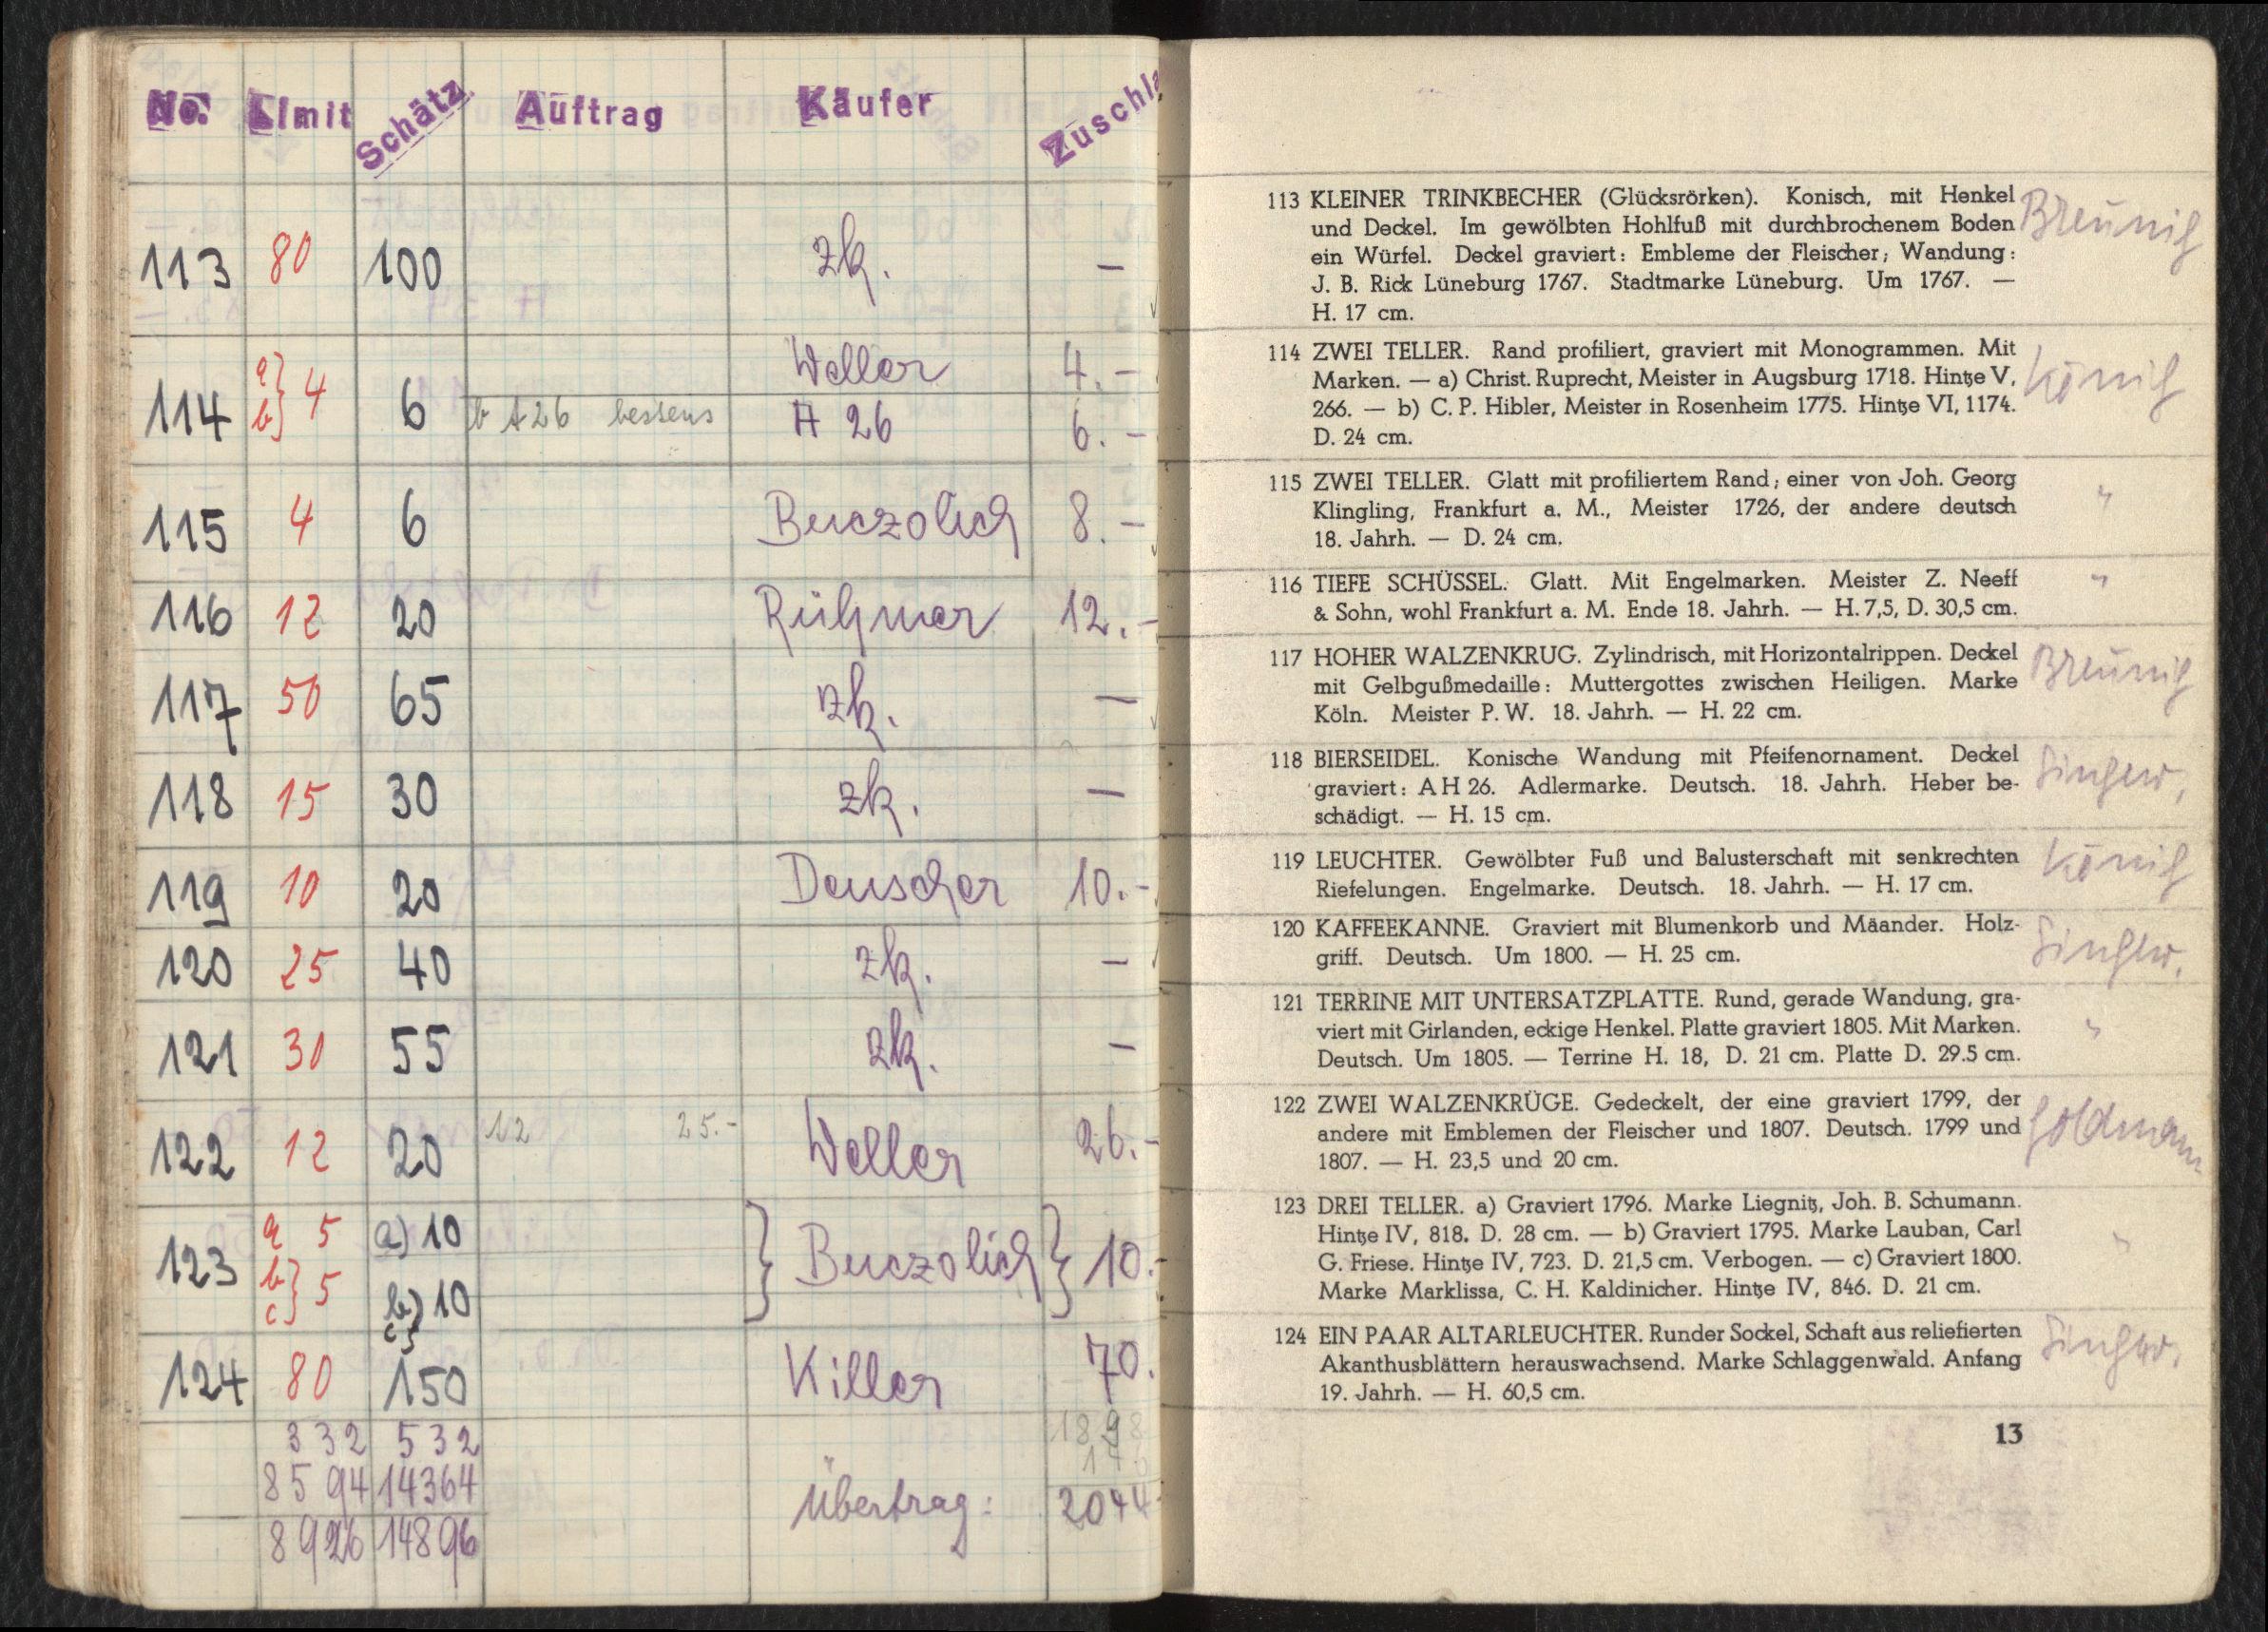 No. Limit Schätz Auftrag Käufer Zuschla
113 80 100 zk. —
114 a) b) 4 6 Weller 4.—
b A 26 bestens A 26 6.—
115 4 6 Buczolich 8.—
116 12 20 Rühmer 12.—
117 50 65 zk. —
118 15 30 zk. —
119 10 20 Deuscher 10.—
120 25 40 zk. —
121 30 55 zk. —
122 12 20 12 25.- Weller 26.—
123 a 5 a) 10 } Buczolich } 10.-
b) c) 5 b) c) 10
124 80 150 Killer 70.
332 532 1898
8594 14364
Übertrag: 2044
8926 14896
113 KLEINER TRINKBECHER (Glücksrörken). Konisch, mit Henkel Breunig
und Deckel. Im gewölbten Hohlfuß mit durchbrochenem Boden
ein Würfel. Deckel graviert: Embleme der Fleischer; Wandung:
J. B. Rick Lüneburg 1767. Stadtmarke Lüneburg. Um 1767. —
H. 17 cm.
114 ZWEI TELLER. Rand profiliert, graviert mit Monogrammen. Mit König
Marken. — a) Christ. Ruprecht, Meister in Augsburg 1718. Hintze V,
266. — b) C. P. Hibler, Meister in Rosenheim 1775. Hintze VI, 1174.
D. 24 cm.
115 ZWEI TELLER. Glatt mit profiliertem Rand; einer von Joh. Georg "
Klingling, Frankfurt a. M., Meister 1726, der andere deutsch
18. Jahrh. — D. 24 cm.
116 TIEFE SCHÜSSEL. Glatt. Mit Engelmarken. Meister Z. Neeff "
& Sohn, wohl Frankfurt a. M. Ende 18. Jahrh. — H. 7,5, D. 30,5 cm.
117 HOHER WALZENKRUG. Zylindrisch, mit Horizontalrippen. Deckel Breunig
mit Gelbgußmedaille: Muttergottes zwischen Heiligen. Marke
Köln. Meister P. W. 18. Jahrh. — H. 22 cm.
118 BIERSEIDEL. Konische Wandung mit Pfeifenornament. Deckel Singer,
graviert: A H 26. Adlermarke. Deutsch. 18. Jahrh. Heber be-
schädigt. — H. 15 cm.
119 LEUCHTER. Gewölbter Fuß und Balusterschaft mit senkrechten König
Riefelungen. Engelmarke. Deutsch. 18. Jahrh. — H. 17 cm.
120 KAFFEEKANNE. Graviert mit Blumenkorb und Mäander. Holz- Singer,
griff. Deutsch. Um 1800. — H. 25 cm.
121 TERRINE MIT UNTERSATZPLATTE. Rund, gerade Wandung, gra- "
viert mit Girlanden, eckige Henkel. Platte graviert 1805. Mit Marken.
Deutsch. Um 1805. — Terrine H. 18, D. 21 cm. Platte D. 29.5 cm.
122 ZWEI WALZENKRÜGE. Gedeckelt, der eine graviert 1799, der Goldmann
andere mit Emblemen der Fleischer und 1807. Deutsch. 1799 und
1807. — H. 23,5 und 20 cm.
123 DREI TELLER. a) Graviert 1796. Marke Liegnitz, Joh. B. Schumann. "
Hintze IV, 818. D. 28 cm. — b) Graviert 1795. Marke Lauban, Carl
G. Friese. Hintze IV, 723. D. 21,5 cm. Verbogen. — c) Graviert 1800.
Marke Marklissa, C. H. Kaldinicher. Hintze IV, 846. D. 21 cm.
124 EIN PAAR ALTARLEUCHTER. Runder Sockel, Schaft aus reliefierten Singer.
Akanthusblättern herauswachsend. Marke Schlaggenwald. Anfang
19. Jahrh. — H. 60,5 cm.
13